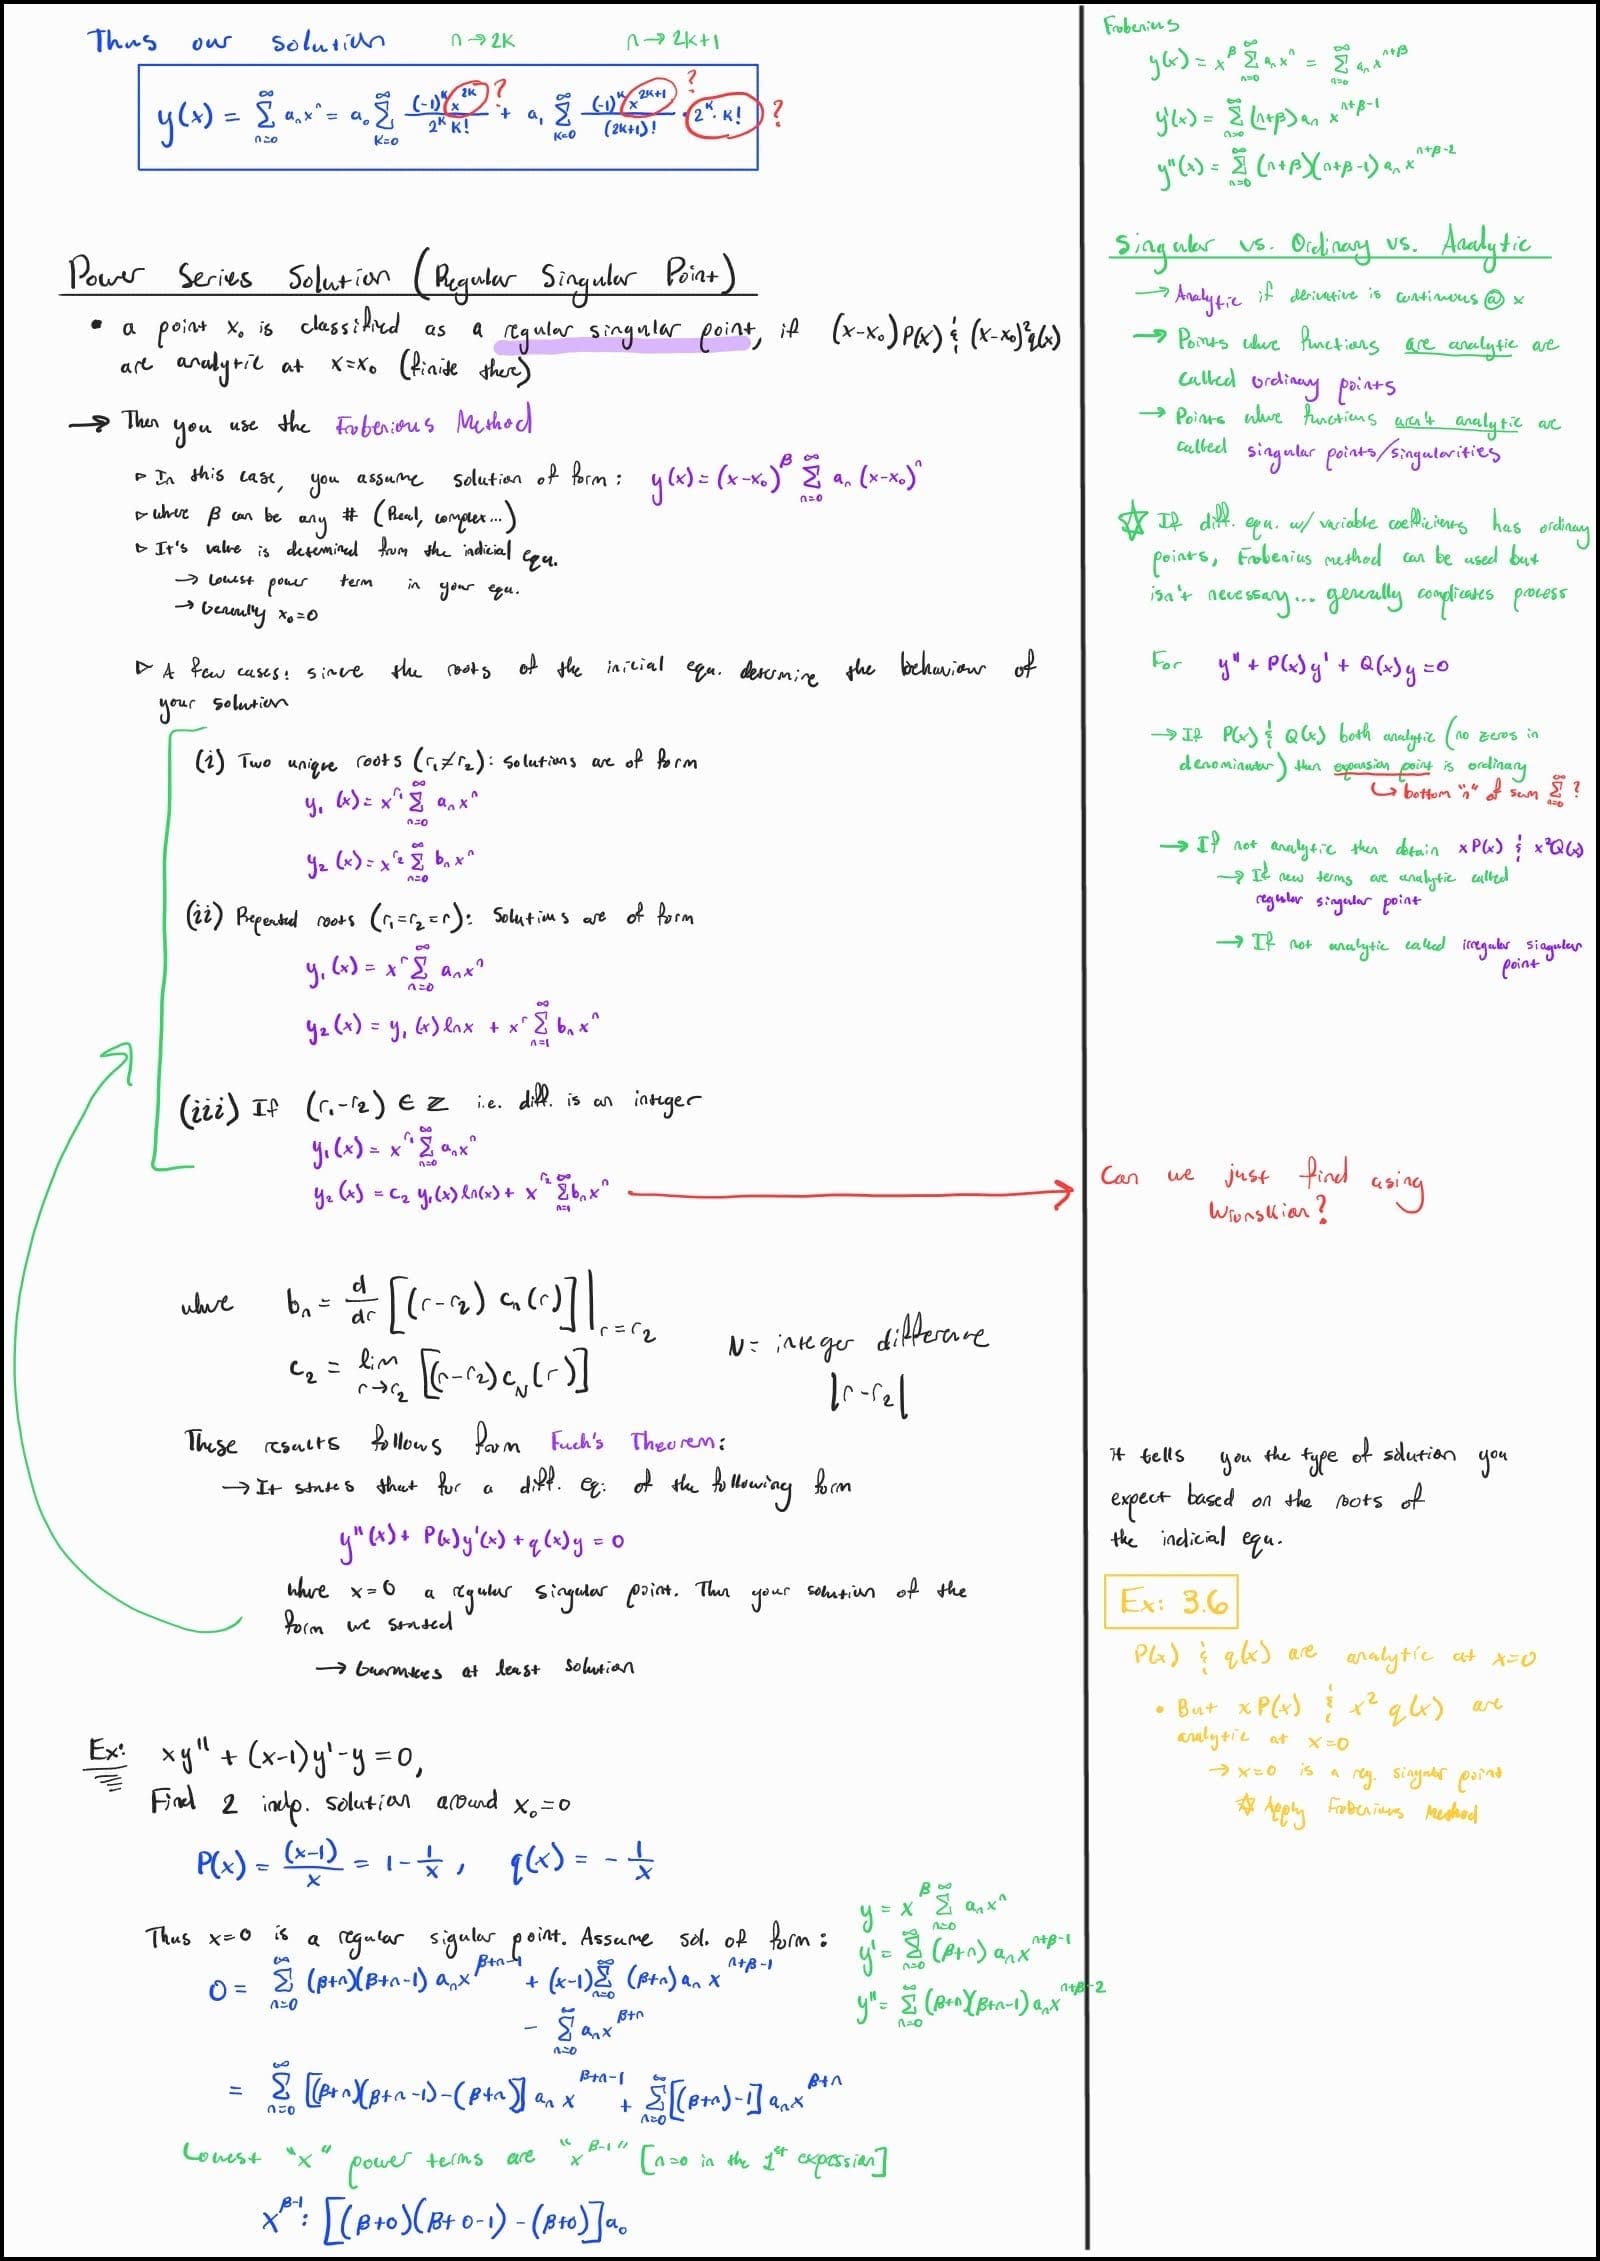 Thus our solution n→2K n→2K+1
y(x) = ∑_{n=0}^∞ a_n x^n = a_0 ∑_{K=0}^∞ (-1)^K x^{2K} / 2^K K! ? + a_1 ∑_{K=0}^∞ (-1)^K x^{2K+1} / (2K+1)! ? · 2^K · K! ?
Power Series Solution (Regular Singular Point)
• a point x_0 is classified as a regular singular point, if (x-x_0)P(x) & (x-x_0)^2 q(x)
are analytic at x=x_0 (finite there)
→ Then you use the Frobenious Method
▹ In this case, you assume solution of form: y(x) = (x-x_0)^β ∑_{n=0}^∞ a_n (x-x_0)^n
▹ where β can be any # (Real, complex...)
▹ It's value is determined from the indicial equ.
→ Lowest power term in your equ.
→ Generally x_0=0
▹ A few cases: since the roots of the inicial equ. determine the behaviour of
your solution
(i) Two unique roots (r_1≠r_2): solutions are of form
y_1(x) = x^{r_1} ∑_{n=0}^∞ a_n x^n
y_2(x) = x^{r_2} ∑_{n=0}^∞ b_n x^n
(ii) Repeated roots (r_1=r_2=r): Solutions are of form
y_1(x) = x^r ∑_{n=0}^∞ a_n x^n
y_2(x) = y_1(x) lnx + x^r ∑_{n=1}^∞ b_n x^n
(iii) If (r_1-r_2) ∈ Z i.e. diff. is an integer
y_1(x) = x^{r_1} ∑_{n=0}^∞ a_n x^n
y_2(x) = c_2 y_1(x) ln(x) + x^{r_2} ∑_{n=1}^∞ b_n x^n
where b_n = d/dr [(r-r_2) c_n(r)] |_{r=r_2}
c_2 = lim_{r→r_2} [(r-r_2) c_N(r)]
N = integer difference
|r-r_2|
These results follows form Fuch's Theorem:
→ It states that for a diff. eq. of the following form
y''(x) + P(x)y'(x) + q(x)y = 0
where x=0 a regular singular point. Then your solution of the
form we stated
→ Guarantees at least solution
Ex: xy'' + (x-1)y' - y = 0,
Find 2 indp. solution around x_0=0
P(x) = (x-1)/x = 1 - 1/x , q(x) = - 1/x
Thus x=0 is a regular sigular point. Assume sol. of form:
y = x^β ∑_{n=0}^∞ a_n x^n
y' = ∑_{n=0}^∞ (β+n) a_n x^{n+β-1}
y'' = ∑_{n=0}^∞ (β+n)(β+n-1) a_n x^{n+β-2}
0 = ∑_{n=0}^∞ (β+n)(β+n-1) a_n x^{β+n-1} + (x-1) ∑_{n=0}^∞ (β+n) a_n x^{n+β-1}
- ∑_{n=0}^∞ a_n x^{β+n}
= ∑_{n=0}^∞ [(β+n)(β+n-1) - (β+n)] a_n x^{β+n-1} + ∑_{n=0}^∞ [(β+n)-1] a_n x^{β+n}
Lowest "x" power terms are "x^{β-1}" [n=0 in the 1st expression]
x^{β-1}: [(β+0)(β+0-1) - (β+0)] a_0
Frobenius
y(x) = x^β ∑_{n=0}^∞ a_n x^n = ∑_{n=0}^∞ a_n x^{n+β}
y'(x) = ∑_{n=0}^∞ (n+β) a_n x^{n+β-1}
y''(x) = ∑_{n=0}^∞ (n+β)(n+β-1) a_n x^{n+β-2}
Singular vs. Ordinary vs. Analytic
→ Analytic if derivative is continuous @ x
→ Points where functions are analytic are
called ordinary points
→ Points where functions aren't analytic are
called singular points/singularities
☆ If diff. equ. w/ variable coefficients has ordinary
points, Frobenius method can be used but
isn't necessary... generally complicates process
For y'' + P(x)y' + Q(x)y = 0
→ If P(x) & Q(x) both analytic (no zeros in
denominator) then expansion point is ordinary
↳ bottom "n" of sum ∑_{n=0}^∞ ?
→ If not analytic then obtain xP(x) & x^2Q(x)
→ If new terms are analytic called
regular singular point
→ If not analytic called irregular singular
point
Can we just find using
Wronskian?
It tells you the type of solution you
expect based on the roots of
the indicial equ.
Ex: 3.6
P(x) & q(x) are analytic at x=0
• But xP(x) & x^2 q(x) are
analytic at x=0
→ x=0 is a reg. singular point
☆ Apply Frobenius Method